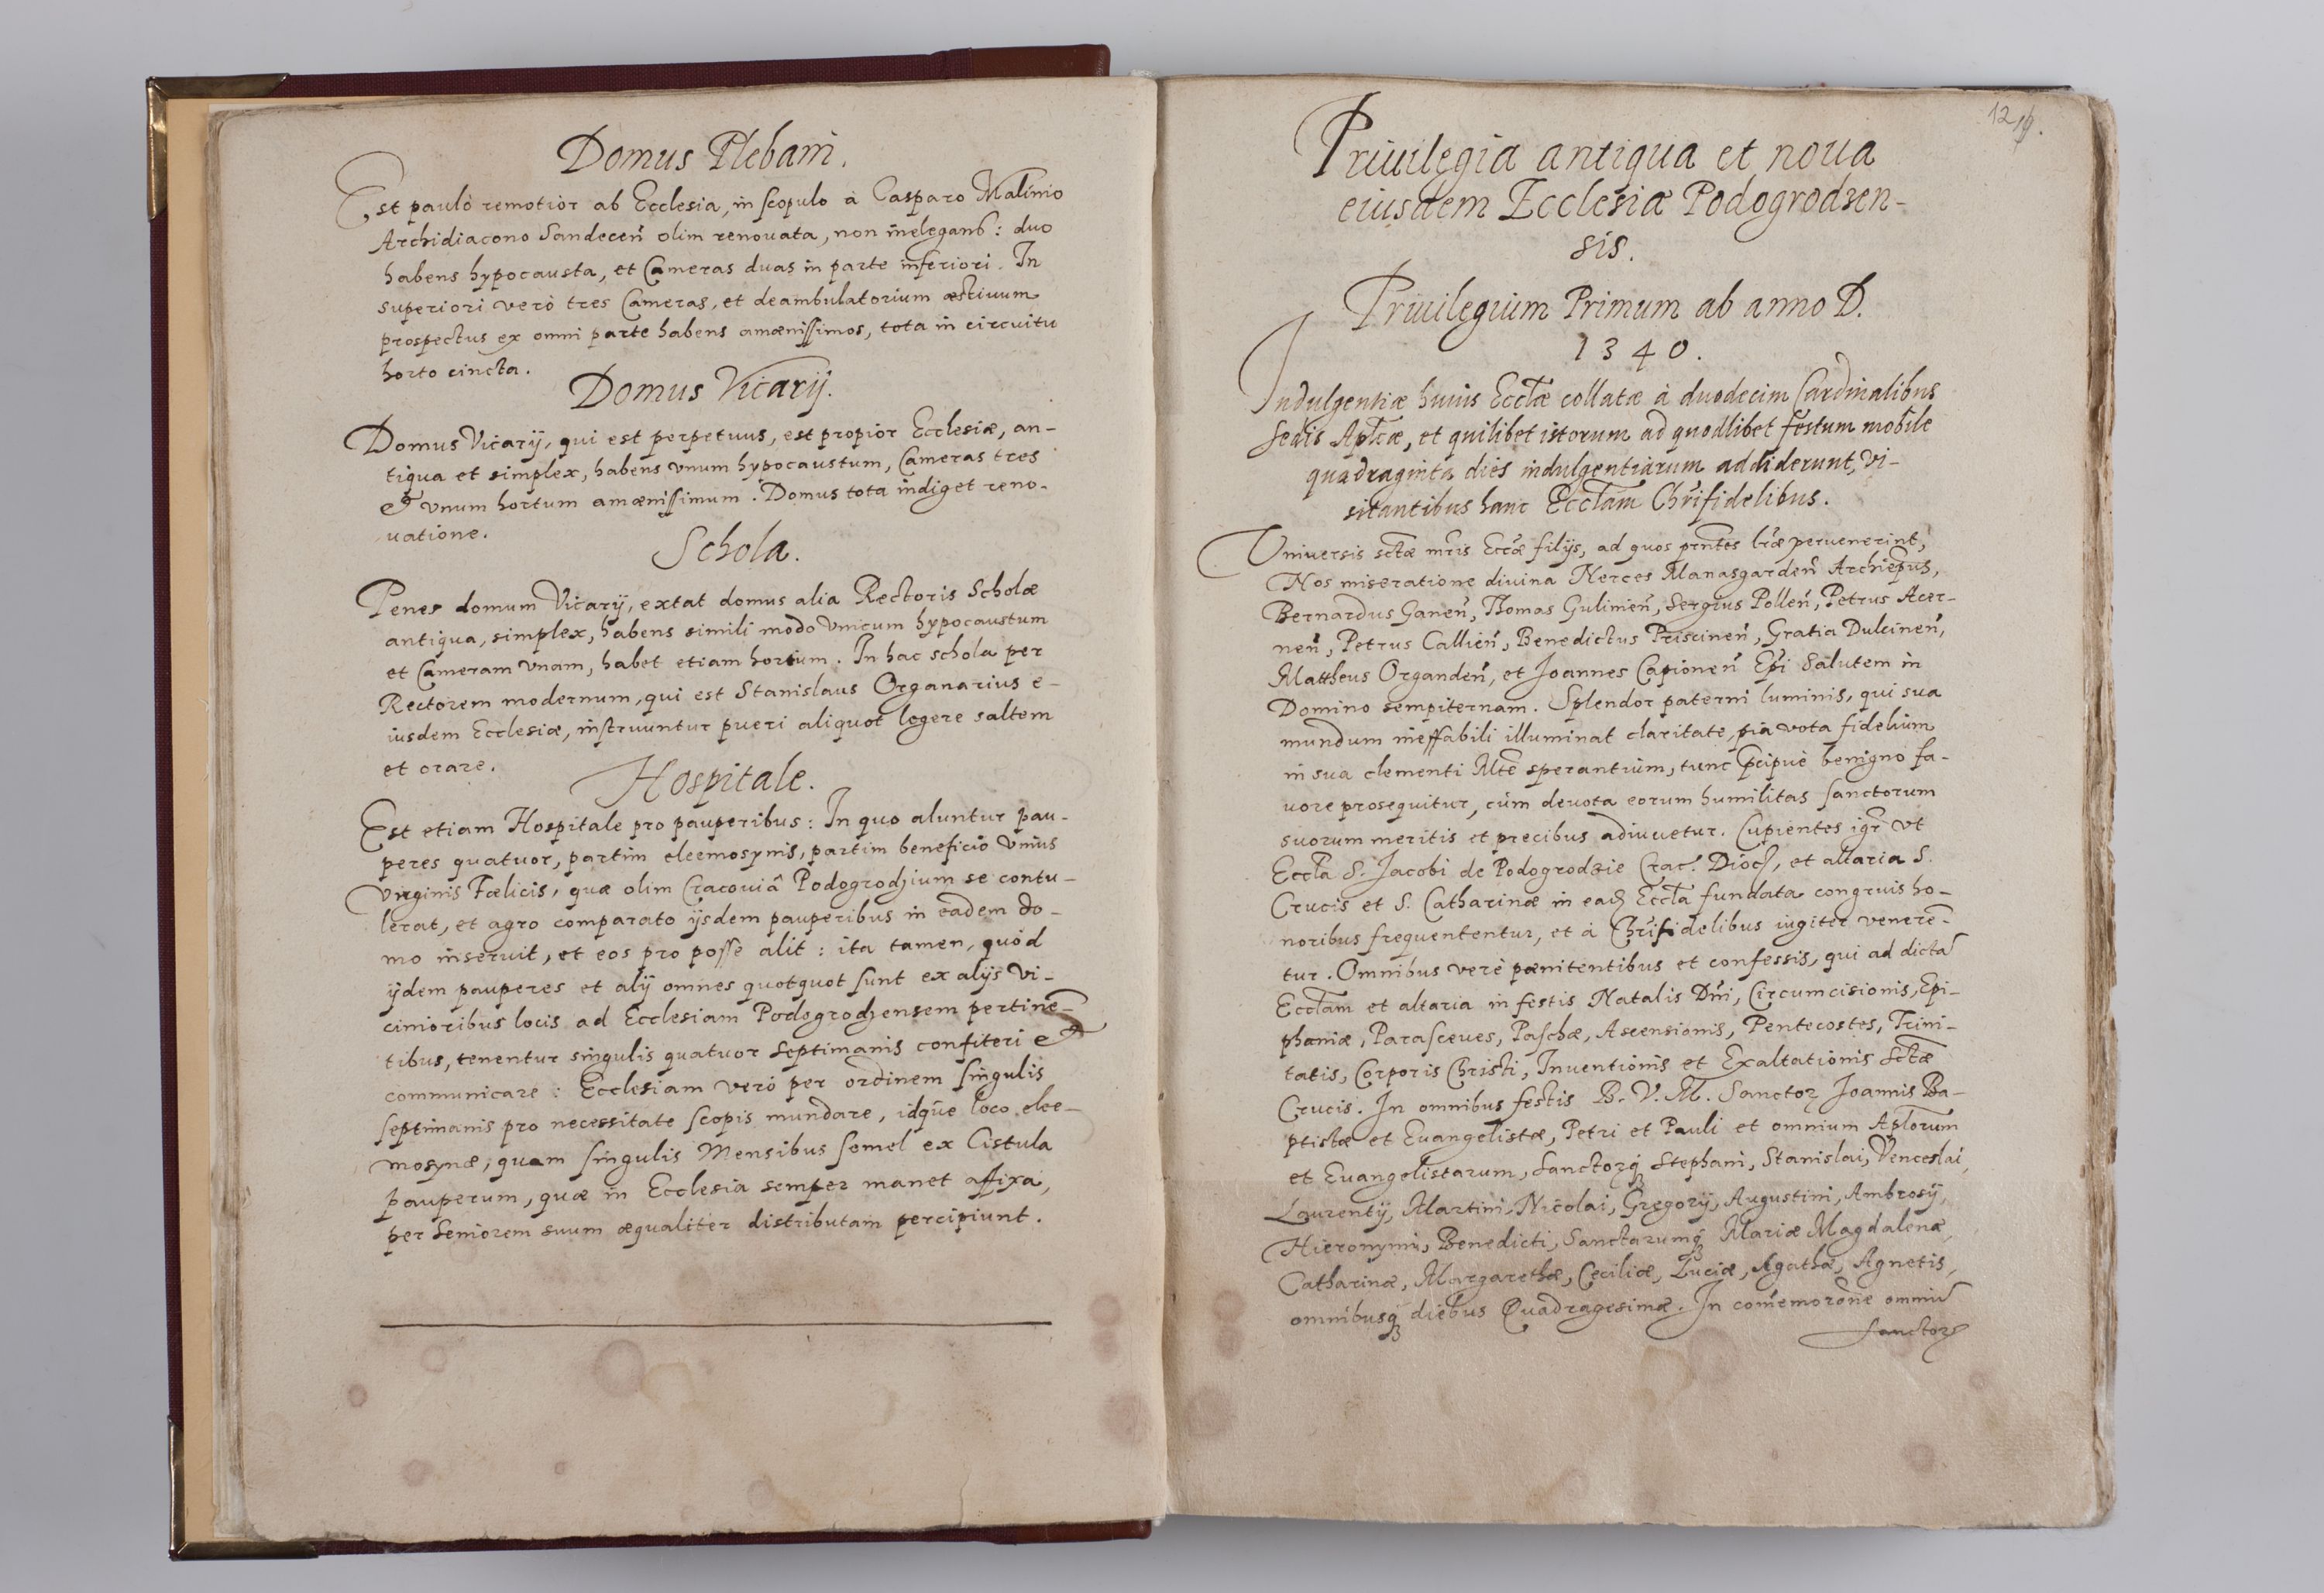 Domus Plebani.
Est paulò remotior ab Ecclesia, in scopulo à Casparo Malinio
Archidiacono Sandeceñ olim renouata, non inelegans: duo
habens hypocausta, et Cameras duas in parte inferiori. In
superiori verò tres Cameras, et deambulatorium æstiuum
prospectus ex omni parte habens amænissimos, tota in circuitu
horto cincta.
Domus Vicarij.
Domus Vicarij, qui est perpetuus, est propior Ecclesiæ, an-
tiqua et simplex, habens vnum hypocaustum, Cameras tres
et vnum hortum amænissimum. Domus tota indiget reno-
uatione.
Schola.
Penes domum Vicarij, extat domus alia Rectoris Scholæ
antiqua, simplex, habens simili modo vnicum hypocaustum
et Cameram vnam, habet etiam hortum. In hac schola per
Rectorem modernum, qui est Stanislaus Organarius e-
iusdem Ecclesiæ, instruuntur pueri aliquot legere saltem
et orare.
Hospitale.
Est etiam Hospitale pro pauperibus: In quo aluntur pau-
peres quatuor, partim eleemosynis, partim beneficio vnius
virginis Fælicis, quæ olim Cracouiâ Podogrodzium se contu-
lerat, et agro comparato ijsdem pauperibus in eadem do-
mo inseruit, et eos pro posse alit: ita tamen, quòd
ijdem pauperes et alij omnes quotquot sunt ex alijs vi-
cinioribus locis ad Ecclesiam Podogrodzensem pertinẽ-
tibus, tenentur singulis quatuor septimanis confiteri et
communicare: Ecclesiam verò per ordinem singulis
septimanis pro necessitate scopis mundare, idq̃ue loco elee-
mosynæ, quam singulis Mensibus semel ex Cistula
pauperum, quæ in Ecclesia semper manet affixa,
per Seniorem suum æqualiter distributam percipiunt.
12
Priuilegia antiqua et noua
eiusdem Ecclesiæ Podogrodzen-
sis.
Priuilegium Primum ab anno D.
1340.
Indulgentiæ huius Ecctæ collatæ à duodecim Cardinalibus
Sedis Aptcæ, et quilibet istorum ad quodlibet festum mobile
quadraginta dies indulgentiarum addiderunt, vi-
sitantibus hanc Ecctam Chrĩfidelibus.
Vniuersis sctæ mris Eccæ filijs, ad quos prntes lræ peruenerint,
Nos miseratione diuina Nerces Manasgardeñ Archiepus,
Bernardus Ganeñ, Thomas Gulinieñ, Sergius Polleñ, Petrus Acer-
neñ, Petrus Callieñ, Benedictus Priscineñ, Gratia Dulcineñ,
Mattheus Organdeñ, et Joannes Capioneñ Epi Salutem in
Domino sempiternam. Splendor paterni luminis, qui sua
mundum ineffabili illuminat claritate, pia vota fidelium
in sua clementi Mte sperantium, tunc p̃cipuè benigno fa-
uore prosequitur, cùm deuota eorum humilitas sanctorum
suorum meritis et precibus adiuuetur. Cupientes igr̃ vt
Eccta S. Jacobi de Podogrodzie Crac. Dioc, et altaria S.
Crucis et S. Catharinæ in eadꝫ Eccta fundata congruis ho-
noribus frequententur, et à Chrĩfidelibus iugiter venerẽ-
tur. Omnibus verè pænitentibus et confessis, qui ad dictã
Ecctam et altaria in festis Natalis Dñi, Circumcisionis, Epi-
phaniæ, Parasceues, Paschæ, Ascensionis, Pentecostes, Trini-
tatis, Corporis Christi, Inuentionis et Exaltationis Sctæ
Crucis. In omnibus festis B. V. M. Sanctoꝝ Joannis Ba-
ptistæ et Euangelistæ, Petri et Pauli et omnium Aplorum
et Euangelistarum, Sanctoꝝqꝫ Stephani, Stanislai, Venceslai,
Laurentij, Martini, Nicolai, Gregorij, Augustini, Ambrosij,
Hieronymi, Benedicti, Sanctarumqꝫ Mariæ Magdalenæ,
Catharinæ, Margarethæ, Ceciliæ, Luciæ, Agathæ, Agnetis,
omnibusqꝫ diebus Quadragesimæ. In com̃emorõne omniũ
Sanctoꝝ